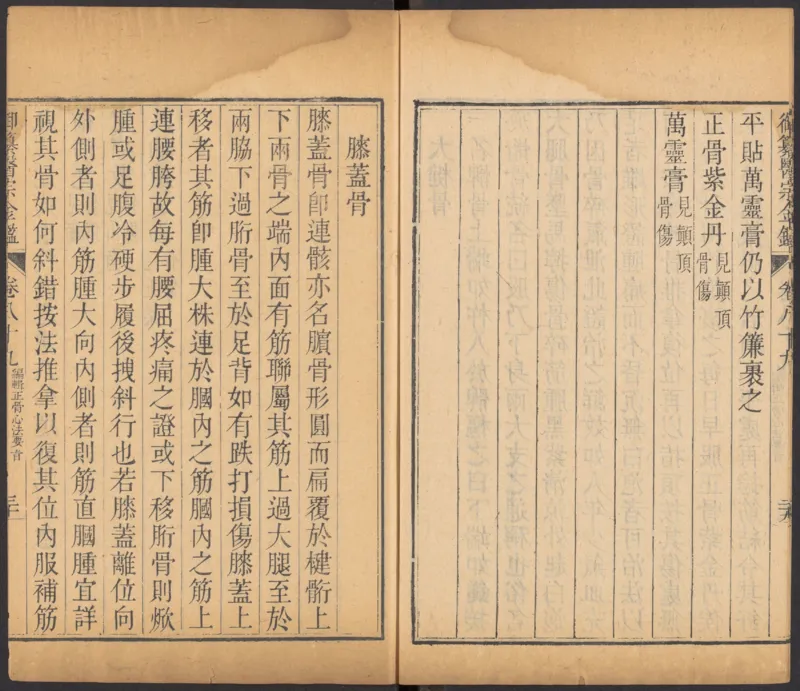 平貼萬靈膏仍以竹簾裹之
正骨紫金丹見顛頂骨傷
萬靈膏見顛頂骨傷
御纂醫宗金鑑
卷八十九
膝蓋骨
膝蓋骨卽連骸亦名臏骨形圓而扁覆於楗骱上
下兩骨之端內面有筋聯屬其筋上過大腿至於
兩脇下過胻骨至於足背如有跌打損傷膝蓋上
移者其筋卽腫大株連於膕內之筋膕內之筋上
連腰胯故每有腰屈疼痛之證或下移胻骨則焮
腫或足腹冷硬步履後拽斜行也若膝蓋離位向
外側者則內筋腫大向內側者則筋直膕腫宜詳
視其骨如何斜錯按法推拿以復其位內服補筋
御纂醫宗金鑑
卷八十九
編輯正骨心法要旨